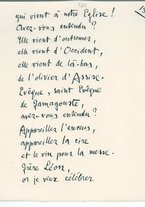 qui vient à notre Eglise !
Avez-vous entendu ?
Elle vient d'
elle vient d'Occident,
elle vient de là-bas,
de l'olivier d'Assise.
Evêque, saint Evêque
de Famagouste,
avez-vous entendu ?
Appareillez l'encens,
appareillez la cire
et le vin pour la messe.
Frère Léon,
or je veux célébrer